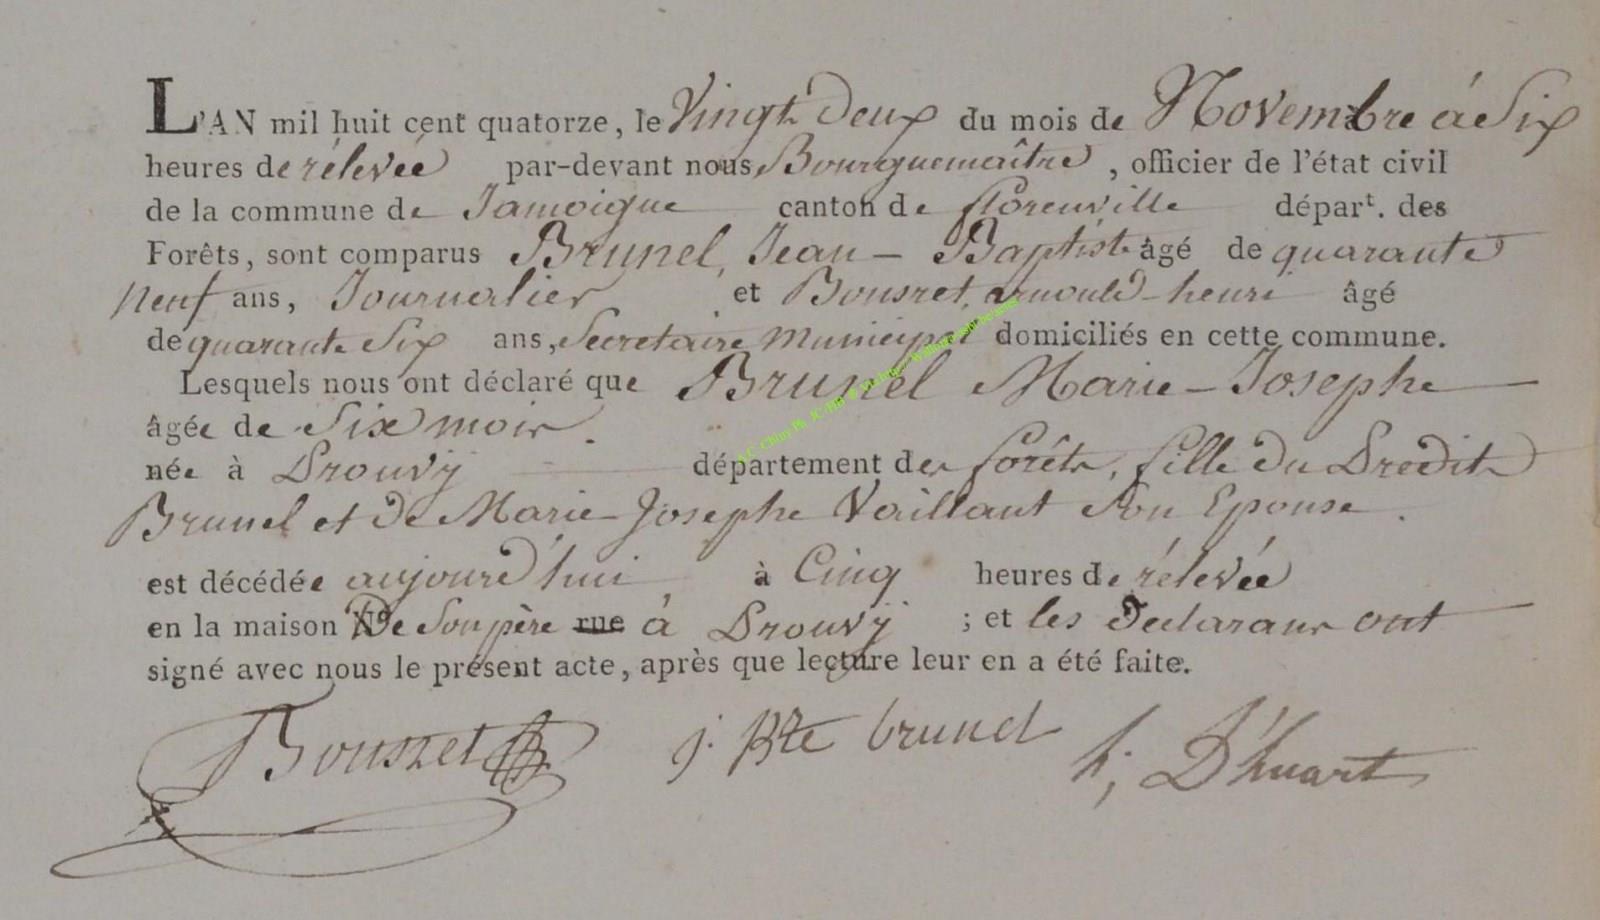 L'AN mil huit cent quatorze, le Vingt Deux du mois de Novembre à Six
heures de rélevée par-devant nous Bourguemaître, officier de l'état civil
de la commune de Jamoigne canton de florenville départ. des
Forêts, sont comparus Brunel, Jean-Baptiste âgé de quarante
neuf ans, Journalier et Bousret, arnould-henri âgé
de quarante Six ans, Secretaire Municipal domiciliés en cette commune.
Lesquels nous ont déclaré que Brunel Marie-Josephe
âgée de Six mois.
née à Prouvy département des forêts, fille du Predit
Brunel et de Marie-Josephe Vaillant Son Epouse.
est décédée aujourd'hui à Cinq heures de rélevée
en la maison De Son père rue à Prouvy ; et les Declarans ont
signé avec nous le présent acte, après que lecture leur en a été faite.
Bousret j. Bte brunel h; D'huart